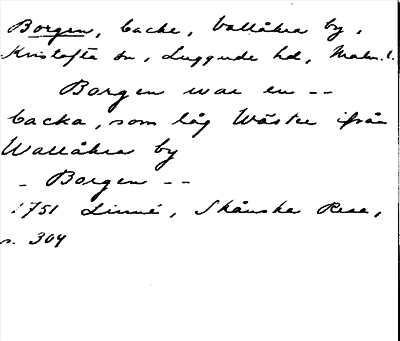 Borgen, backe, Vallåkra by,
Kristofta sn, Luggude hd, Malm. l.
Borgen war en --
backa, som låg Wäster ifrån
Wallåkra by
- Borgen --
1751 Linné, Skånska Resa,
s. 304